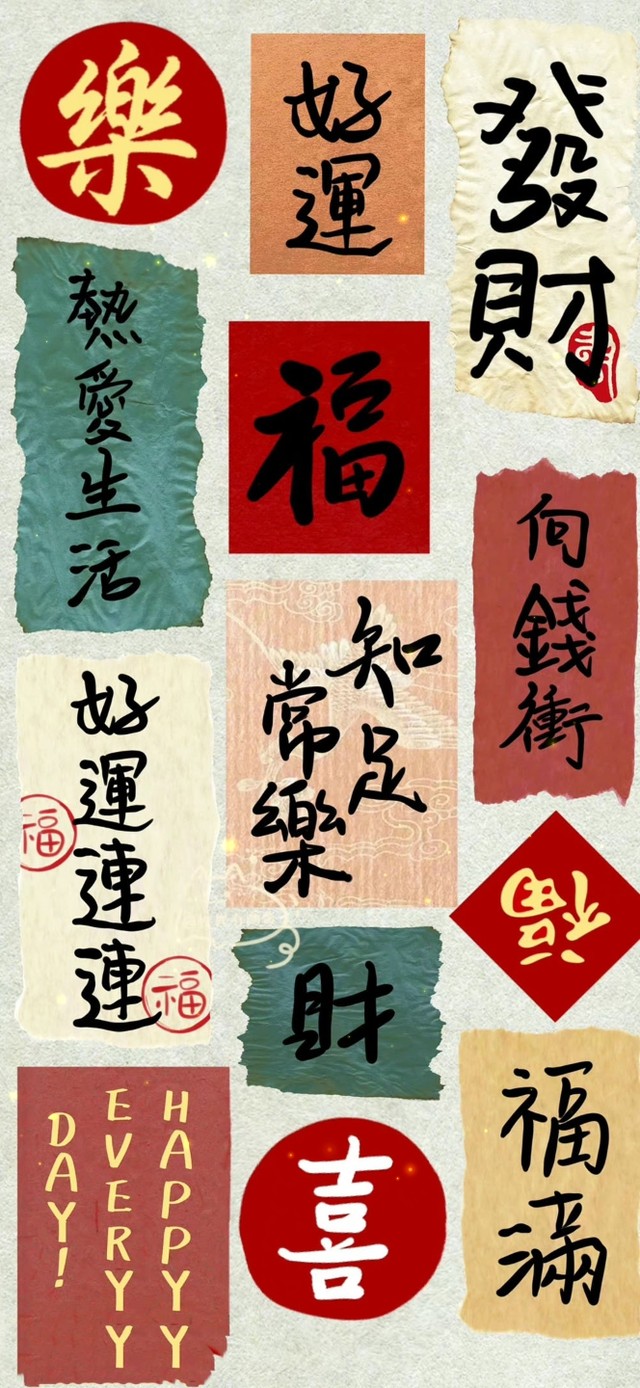 樂
好運
發財
熱愛生活
福
向錢衝
知足
常樂
好運連連
福
福
福
財
HAPPYY
EVERYY
DAY!
喜
福滿